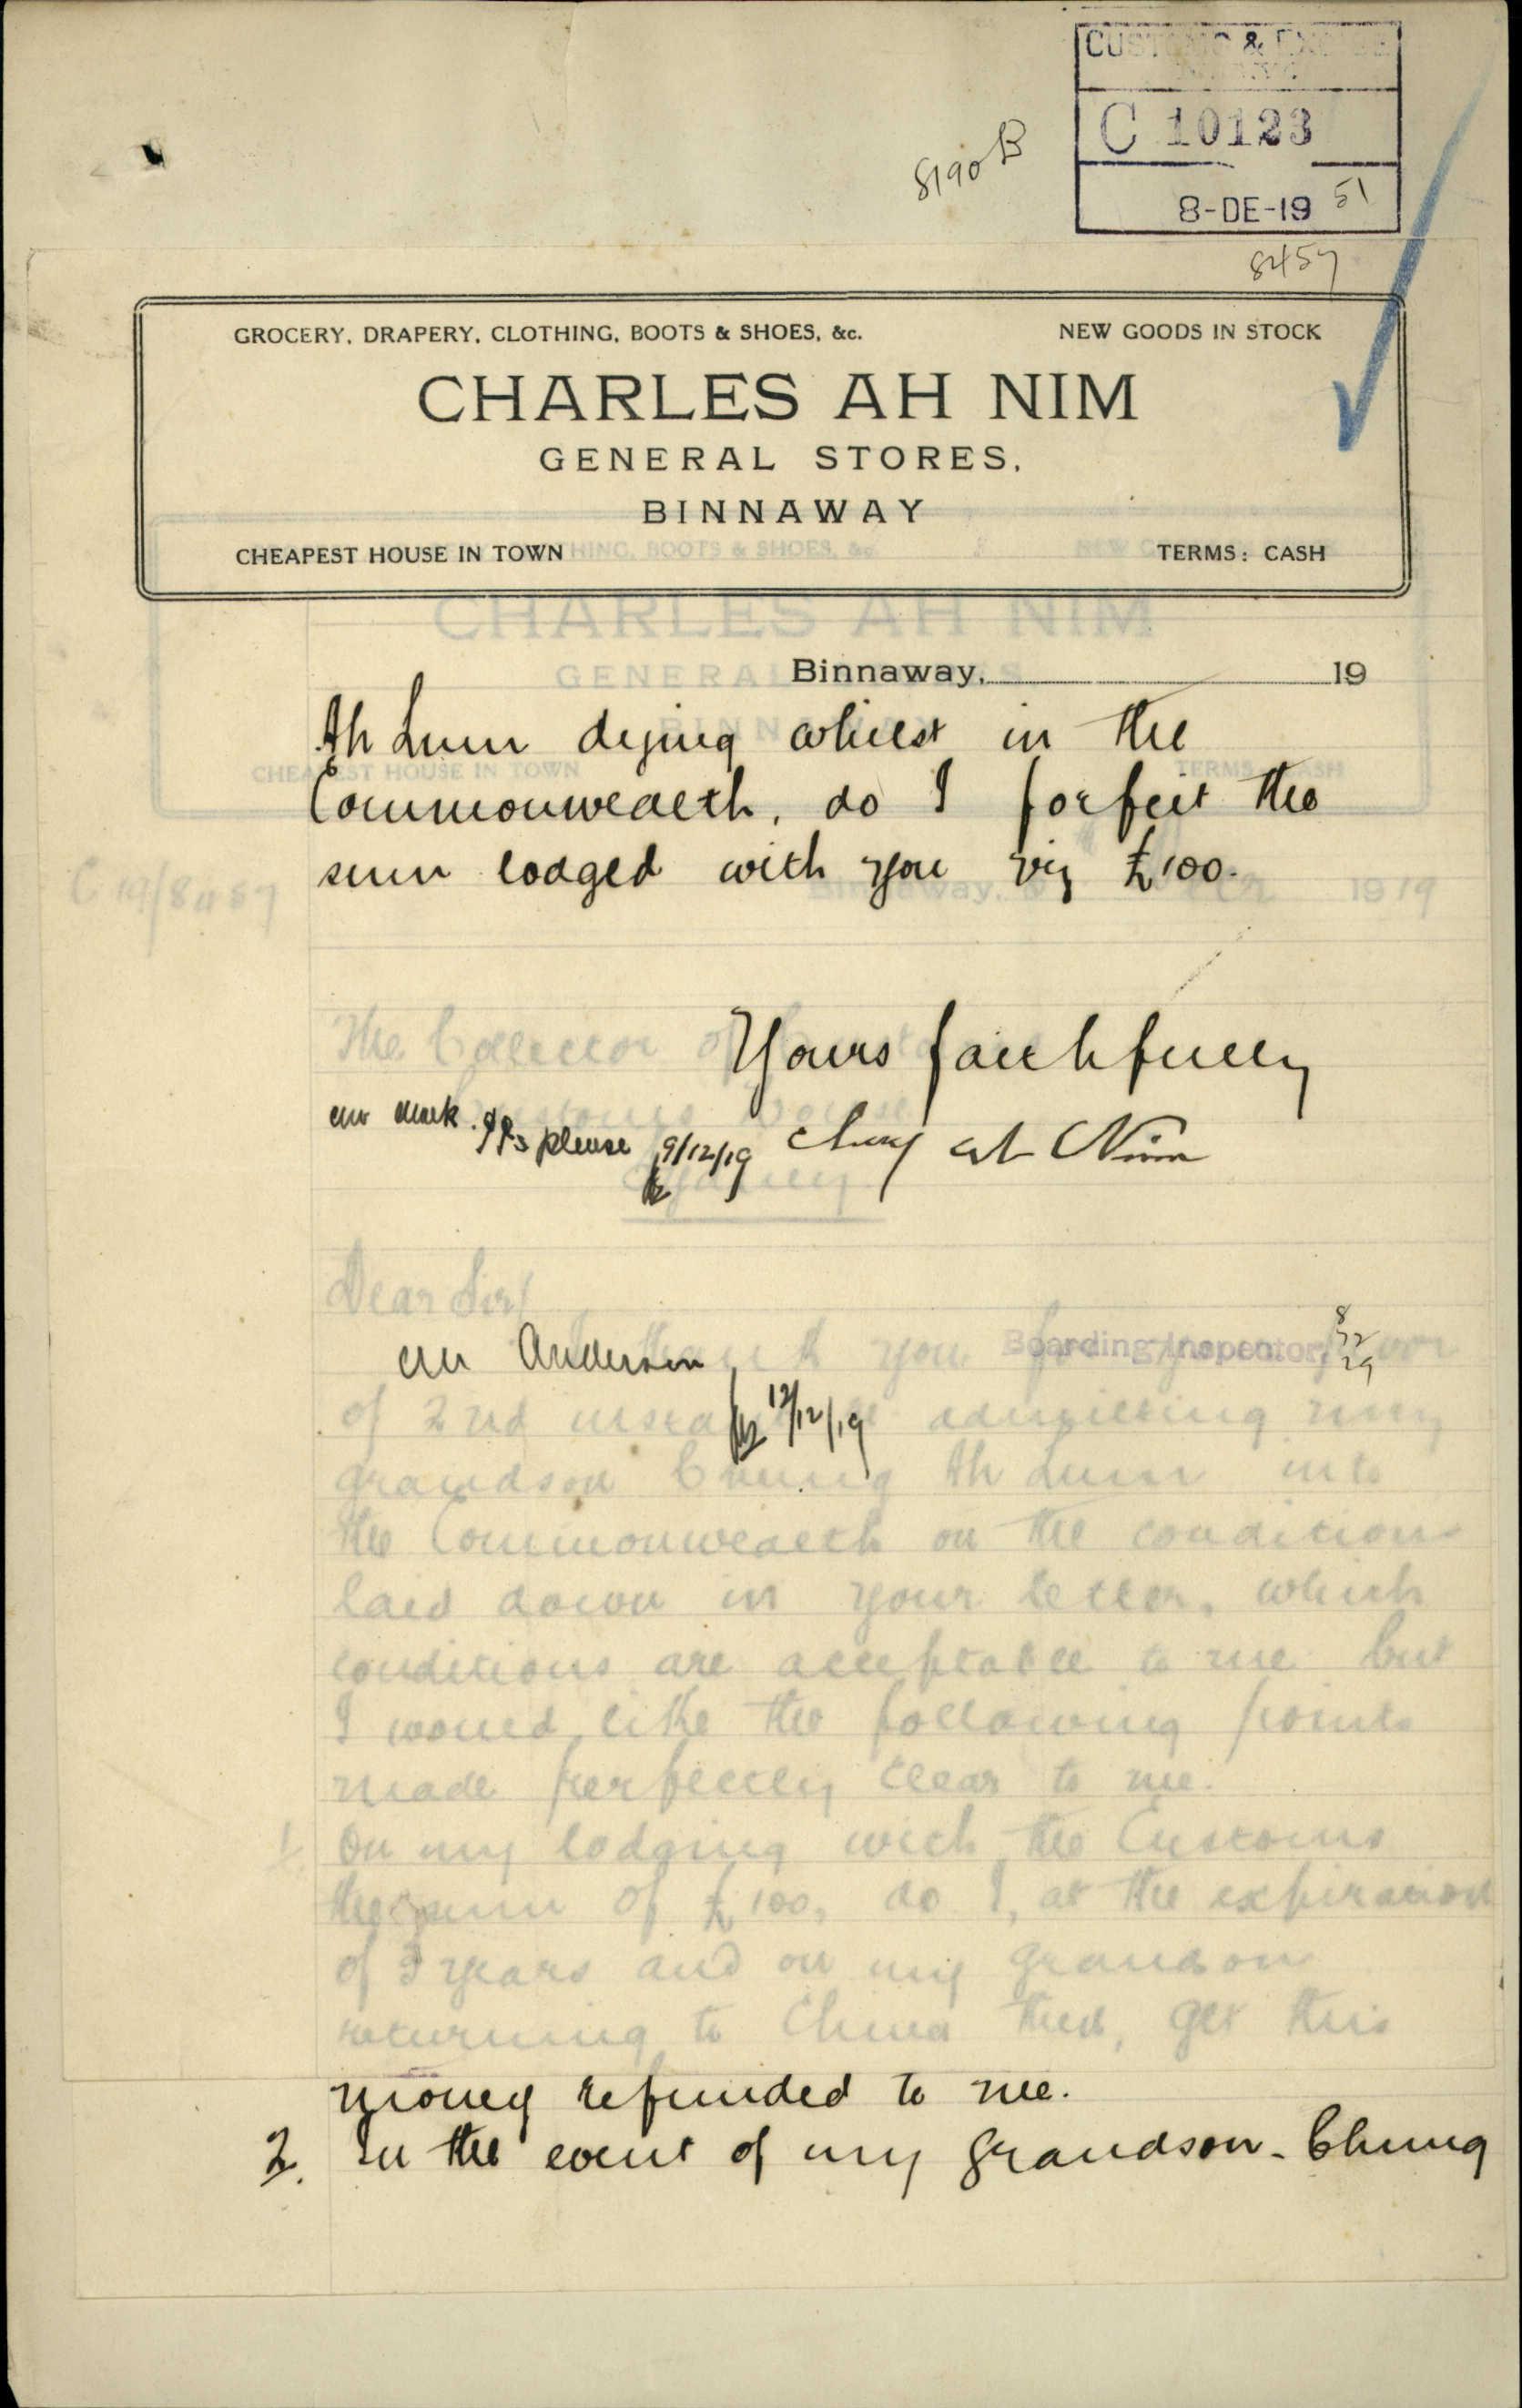 CUSTOMS & EXCISE
C 10123
8-DE-19
51
8190 B
8457
GROCERY, DRAPERY, CLOTHING, BOOTS & SHOES, &c.
NEW GOODS IN STOCK
CHARLES AH NIM
GENERAL STORES,
BINNAWAY
CHEAPEST HOUSE IN TOWN
TERMS: CASH
HING, BOOTS & SHOES, &c
CHARLES AH NIM
GENERAL
Binnaway, 19
Ah Lum dying whilst in the
CHEAPEST HOUSE IN TOWN
TERMS: CASH
Commonwealth, do I forfeit the
sum lodged with you viz £100.
C 19/8457
Binnaway, 1919
The Collector of
Yours faithfully
Customs House
Mr Mark. Ps please 9/12/19
Chas Ah Nim
Sydney
Dear Sir/
Mr Anderson
12/12/19
thank you for your favor
Boarding Inspector,
of 2nd admitting my
grandson Chung Ah Lum into
the Commonwealth on the conditions
laid down in your letter, which
conditions are acceptable to me but
I would like the following points
made perfectly clear to me.
1. On my lodging with the Customs
the sum of £100, do I, at the expiration
of 3 years and on my grandson
returning to China then, get this
money refunded to me.
2. In the event of my grandson - Chung